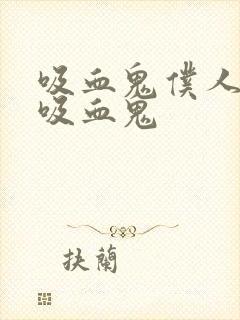 吸血鬼僕人
吸血鬼
抉蘭